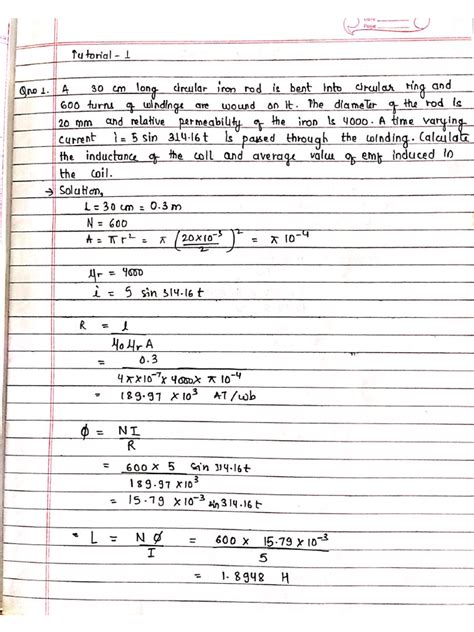 Date
Page
Tutorial - 1
Qno 1. A 30 cm long circular iron rod is bent into circular ring and
600 turns of windings are wound on it. The diameter of the rod is
20 mm and relative permeability of the iron is 4000. A time varying
current i = 5 sin 314.16 t is passed through the winding. Calculate
the inductance of the coil and average value of emf induced in
the coil.
→ Solution,
L = 30 cm = 0.3 m
N = 600
A = π r² = π (20×10⁻³/2)² = π 10⁻⁴
μr = 4000
i = 5 sin 314.16 t
R = l / μo μr A
= 0.3 / 4π×10⁻⁷ × 4000 × π 10⁻⁴
= 189.97 × 10³ AT/wb
φ = NI / R
= 600 × 5 sin 314.16t / 189.97 × 10³
= 15.79 × 10⁻³ sin 314.16 t
* L = N φ / I = 600 × 15.79 × 10⁻³ / 5
= 1.8948 H